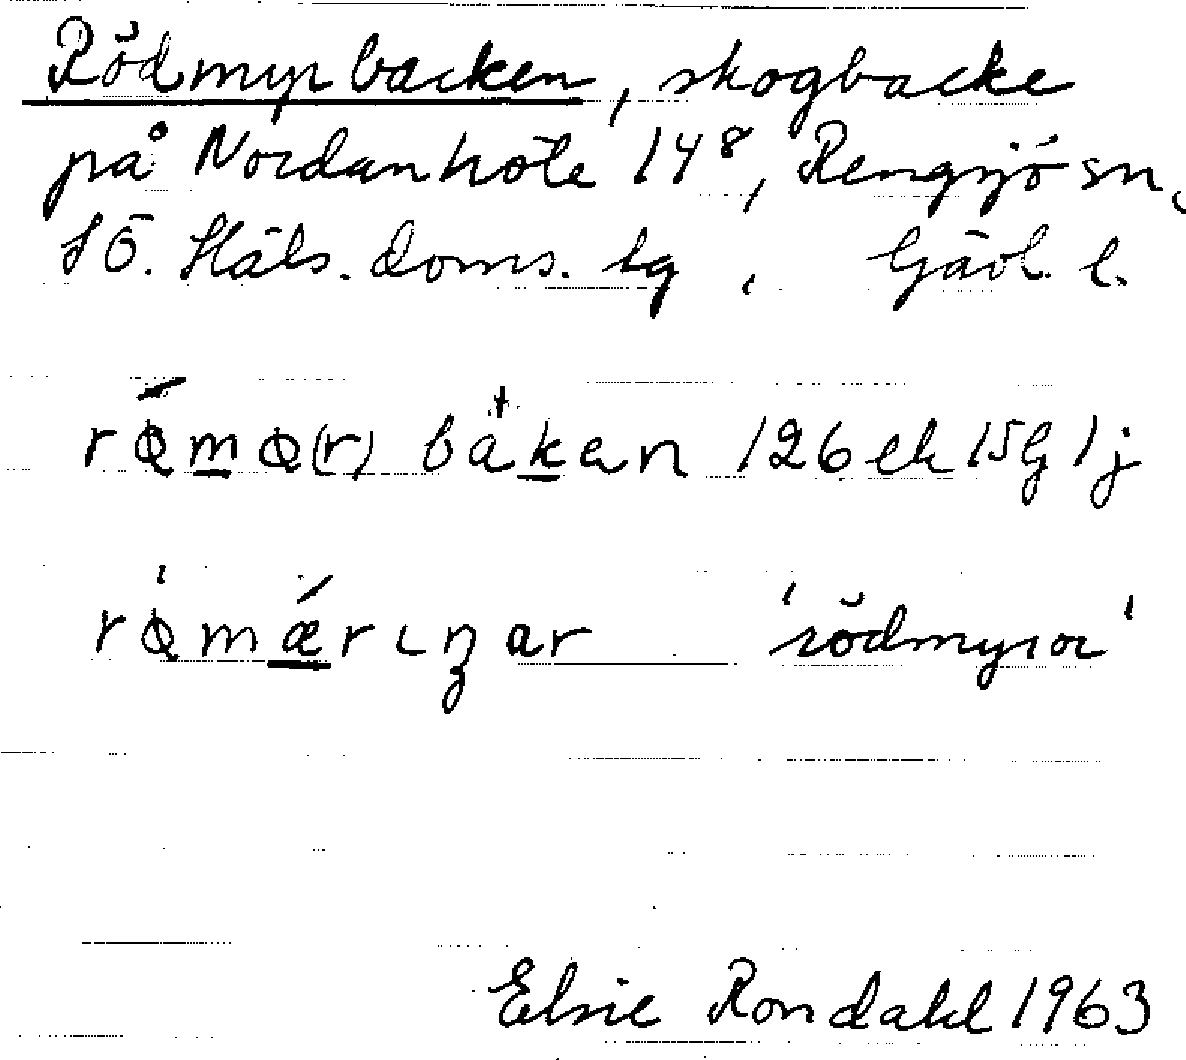 Rödmyrbacken, skogbacke
på Nordanhöle 14⁸, Rengsjö sn,
SÖ. Häls. doms. tg, Gävl. l.
rømø(r)baken 126 ek 15G 1j
rømærɩŋar 'rödmyror'
Elsie Rondahl 1963